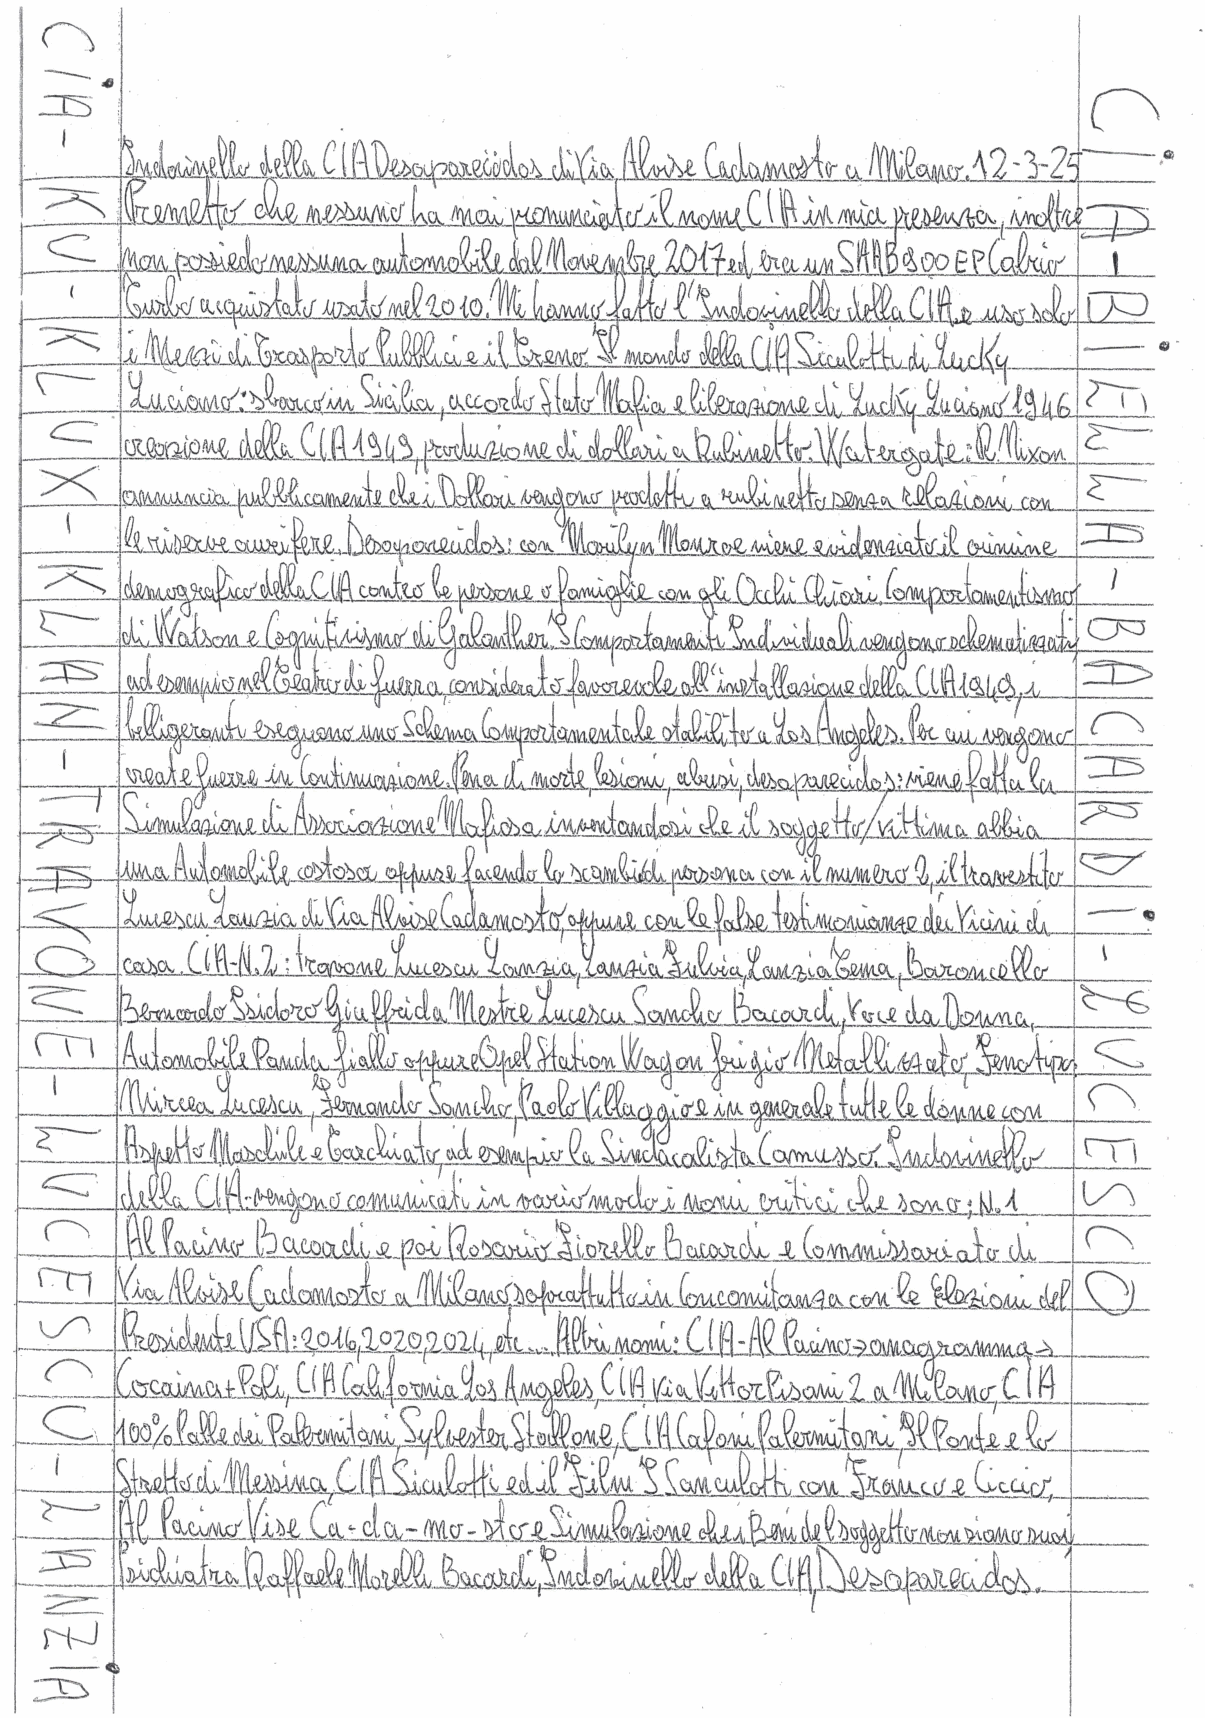 CIA-KU-KLUX-KLAN-TRAVONE-LUCESCU-LANZIA
Indovinello della CIA Desaparecidos di Via Alvise Cadamosto a Milano. 12-3-25
Premetto che nessuno ha mai pronunciato il nome CIA in mia presenza, inoltre
non possiedo nessuna automobile dal Novembre 2017 ed era un SAAB 900 EP Cabrio
Turbo acquistato usato nel 2010. Mi hanno fatto l'Indovinello della CIA e uso solo
i Mezzi di Trasporto Pubblici e il Treno. Il mondo della CIA Siculotti di Lucky
Luciano: sbarco in Sicilia, accordo Stato Mafia e liberazione di Lucky Luciano 1946
creazione della CIA 1949, produzione di dollari a Rubinetto. Watergate: R. Nixon
annuncia pubblicamente che i Dollari vengono prodotti a rubinetto senza relazioni con
le riserve aurifere. Desaparecidos: con Marilyn Monroe viene evidenziato il crimine
demografico della CIA contro le persone o famiglie con gli Occhi Chiari. Comportamentismo
di Watson e Cognitivismo di Galanther. I Comportamenti Individuali vengono schematizzati,
ad esempio nel Teatro di Guerra, considerato favorevole all'installazione della CIA 1949, i
belligeranti eseguono uno Schema Comportamentale stabilito a Los Angeles. Per cui vengono
create Guerre in Continuazione. Pena di morte, lesioni, abusi, desaparecidos: viene fatta la
Simulazione di Associazione Mafiosa inventandosi che il soggetto/vittima abbia
una Automobile costosa oppure facendo lo scambio di persona con il numero 2, il travestito
Lucescu Lanzia di Via Alvise Cadamosto, oppure con le false testimonianze dei Vicini di
casa. CIA-N.2: travone Lucescu Lanzia, Lanzia Fulvia, Lanzia Tema, Baroncello
Bernardo Isidoro Giuffrida Mestre Lucescu Sancho Bacardi, Voce da Donna,
Automobile Panda Giallo oppure Opel Station Wagon Grigio Metallizzato, Fenotipo:
Mircea Lucescu, Fernando Sancho, Paolo Villaggio e in generale tutte le donne con
Aspetto Maschile e Tarchiato, ad esempio la Sindacalista Camusso. Indovinello
della CIA: vengono comunicati in vario modo i nomi critici che sono: N.1
Al Pacino Bacardi e poi Rosario Fiorello Bacardi e Commissariato di
Via Alvise Cadamosto a Milano, soprattutto in Concomitanza con le Elezioni del
Presidente USA: 2016, 2020, 2024, etc... Altri nomi: CIA-Al Pacino → anagramma →
Cocaina + Pali, CIA California Los Angeles, CIA Via Vittor Pisani 2 a Milano, CIA
100% Palle dei Palermitani, Sylvester Stallone, CIA Cafoni Palermitani, Il Ponte e lo
Stretto di Messina, CIA Siculotti ed il Film I Sanculotti con Franco e Ciccio,
Al Pacino Vise Ca-da-mo-sto e Simulazione che i Beni del soggetto non siano suoi,
Psichiatra Raffaele Morelli Bacardi, Indovinello della CIA, Desaparecidos.
CIA-BIELLA-BACARDI-LUCESCO